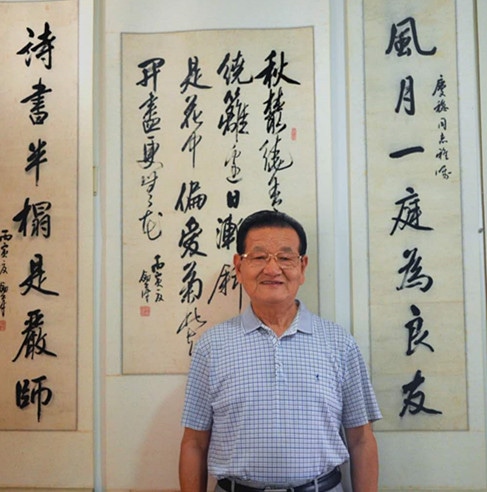 風月一庭為良友
同志雅
秋叢繞舍
繞籬邊日漸斜
是花中偏愛菊此
開盡更無花
丙寅夏
詩書半榻是嚴師
丙寅夏